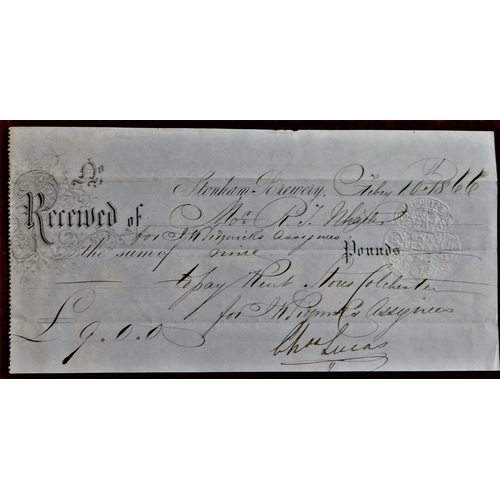 No
Stonham Brewery, Feby 10th 1866
Received of Mr. R. J.
for Assignees
the sum of nine Pounds
to pay Rent Colchester
for Assignees
£ 9.0.0
Chas Lucas